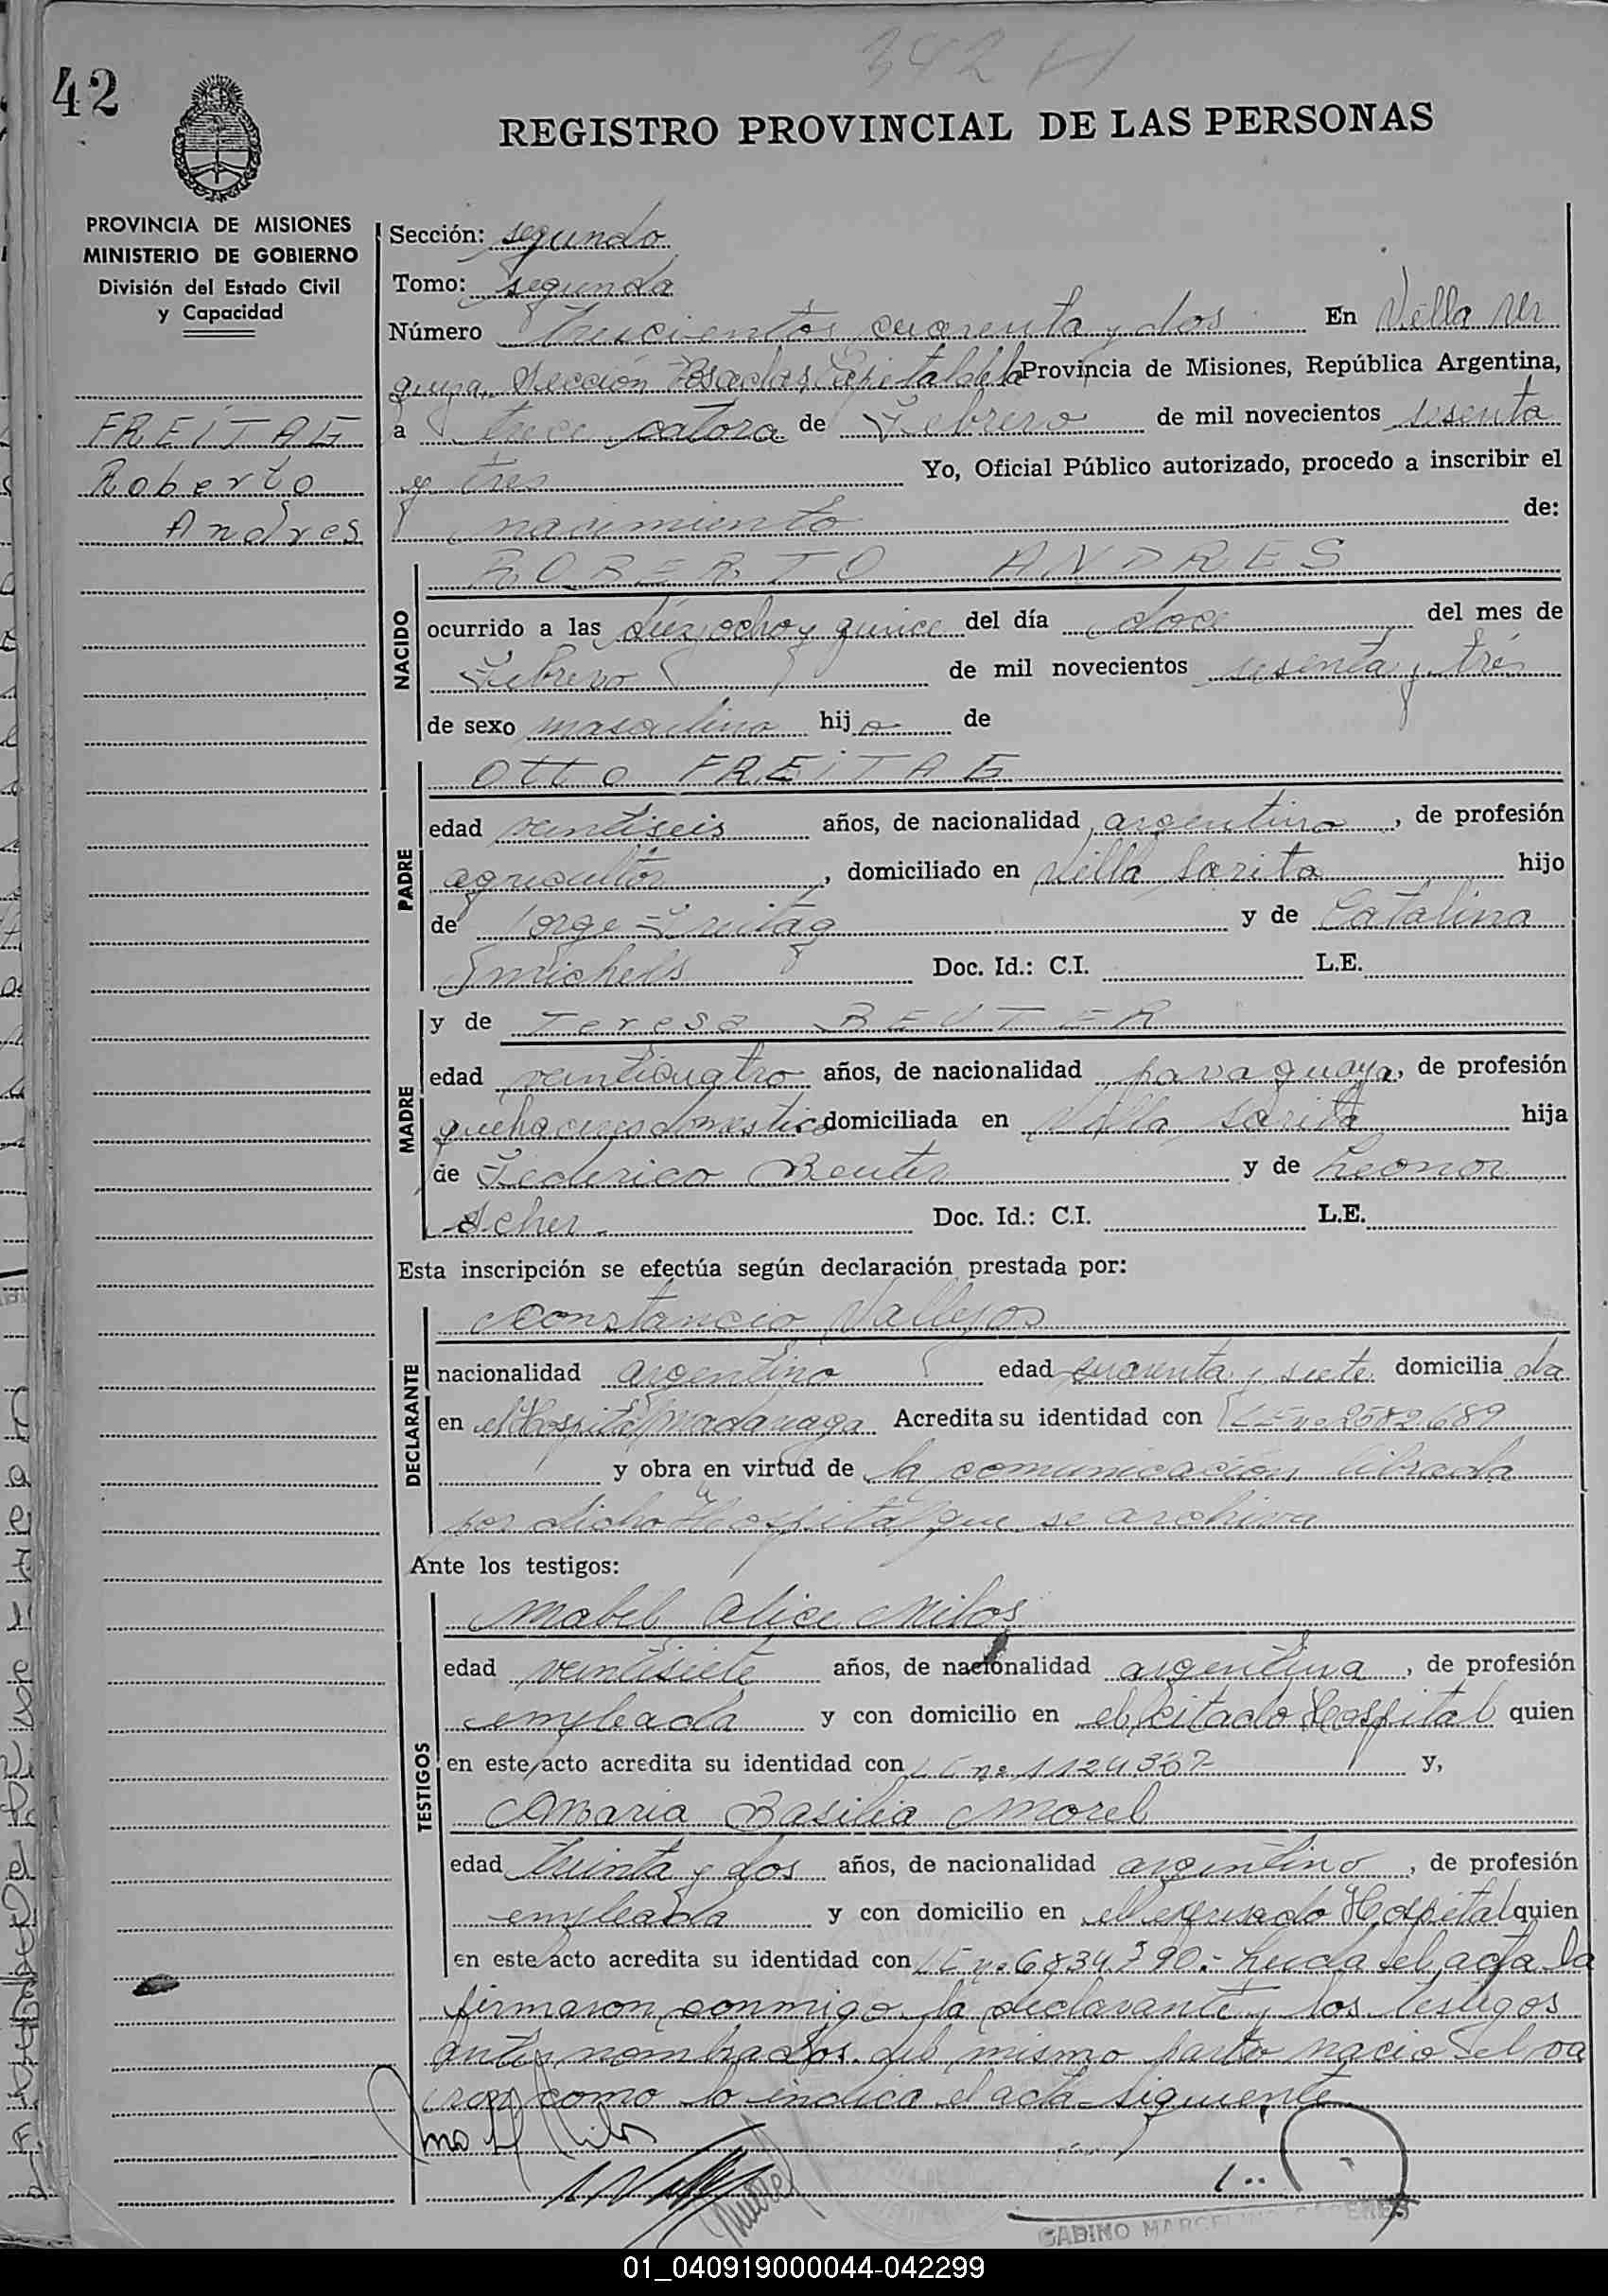 342
42
REGISTRO PROVINCIAL DE LAS PERSONAS
PROVINCIA DE MISIONES
MINISTERIO DE GOBIERNO
División del Estado Civil
y Capacidad
FREITAG
Roberto
Andres
Sección: segundo
Tomo: segunda
Número trescientos cuarenta y dos En Villa Ur
quiza, Sección Posadas, Capital de la Provincia de Misiones, República Argentina,
a trece catorce de Febrero de mil novecientos sesenta
y tres Yo, Oficial Público autorizado, procedo a inscribir el
nacimiento de:
NACIDO
ROBERTO ANDRES
ocurrido a las diez ocho y quince del día doce del mes de
Febrero de mil novecientos sesenta y tres
de sexo masculino hijo de
PADRE
Otto FREITAG
edad veintiseis años, de nacionalidad argentino, de profesión
agricultor, domiciliado en Villa Sarita hijo
de Jorge Freitag y de Catalina
Michels Doc. Id.: C.I. L.E.
MADRE
y de Teresa REUTER
edad veinticuatro años, de nacionalidad paraguaya, de profesión
quehaceres domestico domiciliada en Villa Sarita hija
de Federico Reuter y de Leonor
Scher Doc. Id.: C.I. L.E.
Esta inscripción se efectúa según declaración prestada por:
DECLARANTE
Constancio Vallejos
nacionalidad argentino edad cuarenta y siete domicilia da
en el Hospital Madariaga Acredita su identidad con LE no 2582689
y obra en virtud de la comunicación librada
por dicho Hospital que se archiva
Ante los testigos:
TESTIGOS
Mabel Alice Milos
edad veintisiete años, de nacionalidad argentina, de profesión
empleada y con domicilio en el citado Hospital quien
en este acto acredita su identidad con LC no 1124367 y,
Maria Basilia Morel
edad treinta y dos años, de nacionalidad argentino, de profesión
empleada y con domicilio en el expresado Hospital quien
en este acto acredita su identidad con LC no 6834390.- Leida el acta la
firmaron conmigo la declarante y los testigos
antes nombrados. del mismo parto nacio el va
ron como lo indica el acta siguiente
GABINO MARCELINO CACERES
01_040919000044-042299